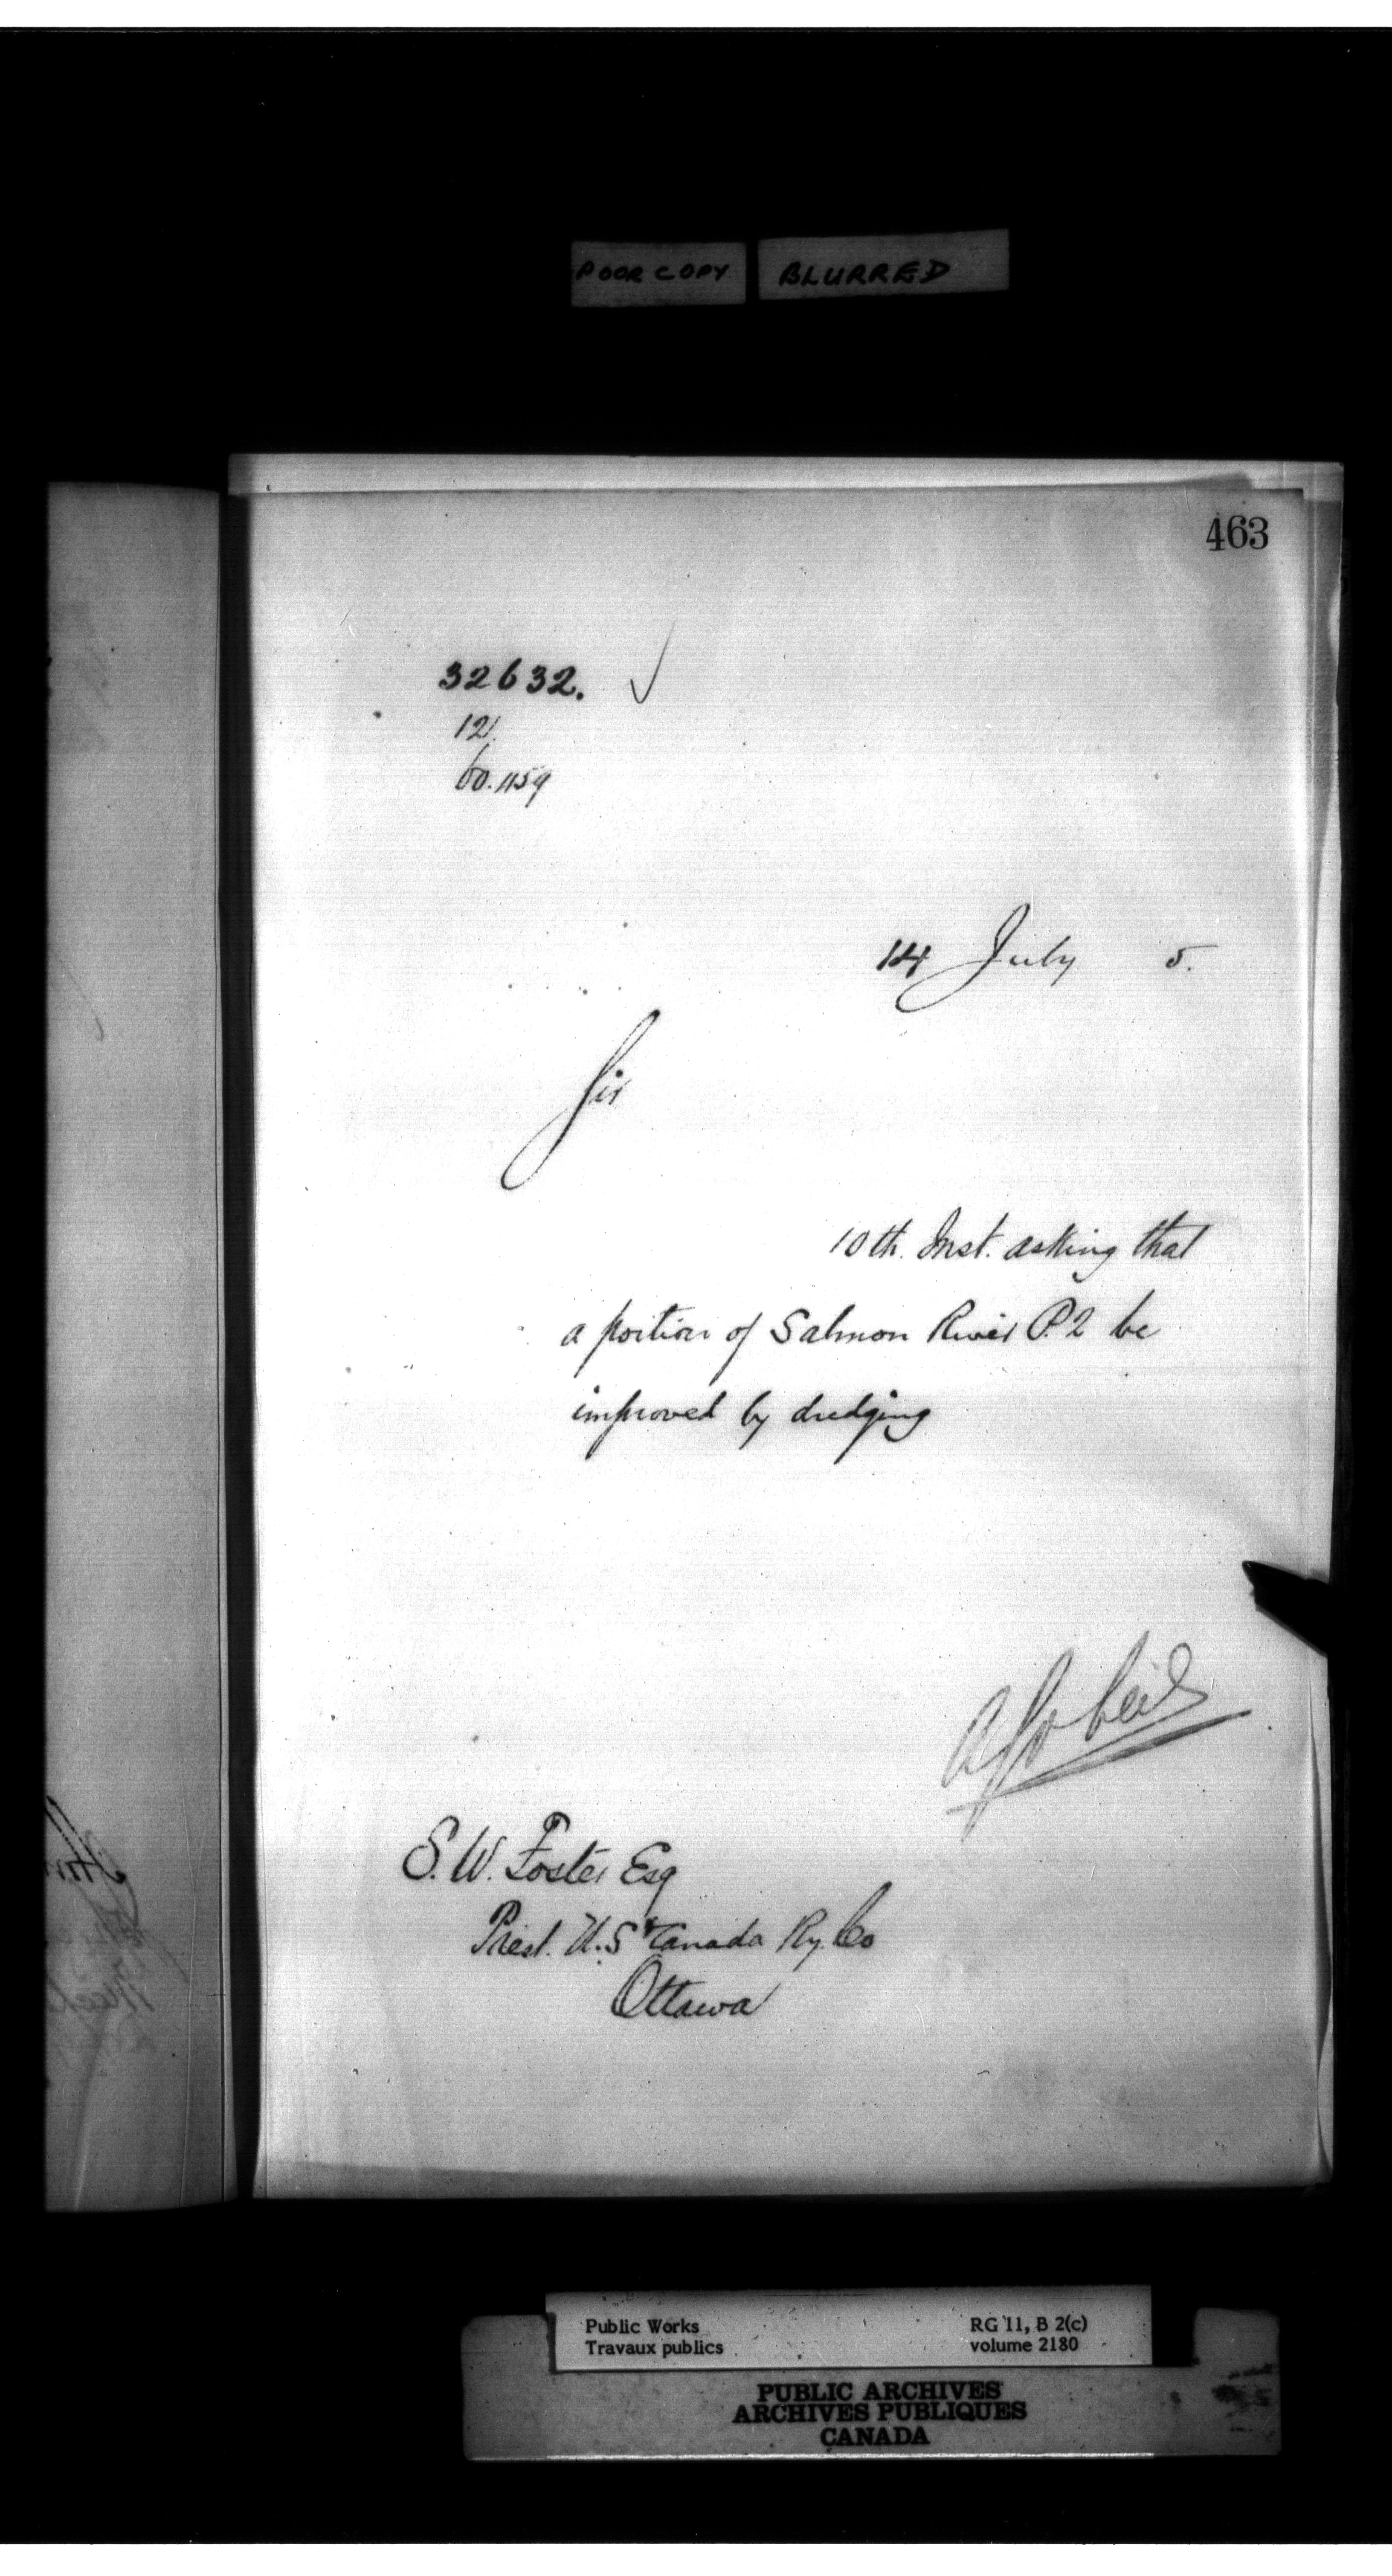 POOR COPY BLURRED
463
32632.
12
60.1159
14 July 5.
Sir
10th. Inst. asking that
a portion of Salmon River P.2 be
improved by dredging
S. W. Foster Esq
Prest. U.S & Canada Ry. Co
Ottawa
Public Works RG 11, B 2(c)
Travaux publics volume 2180
PUBLIC ARCHIVES
ARCHIVES PUBLIQUES
CANADA